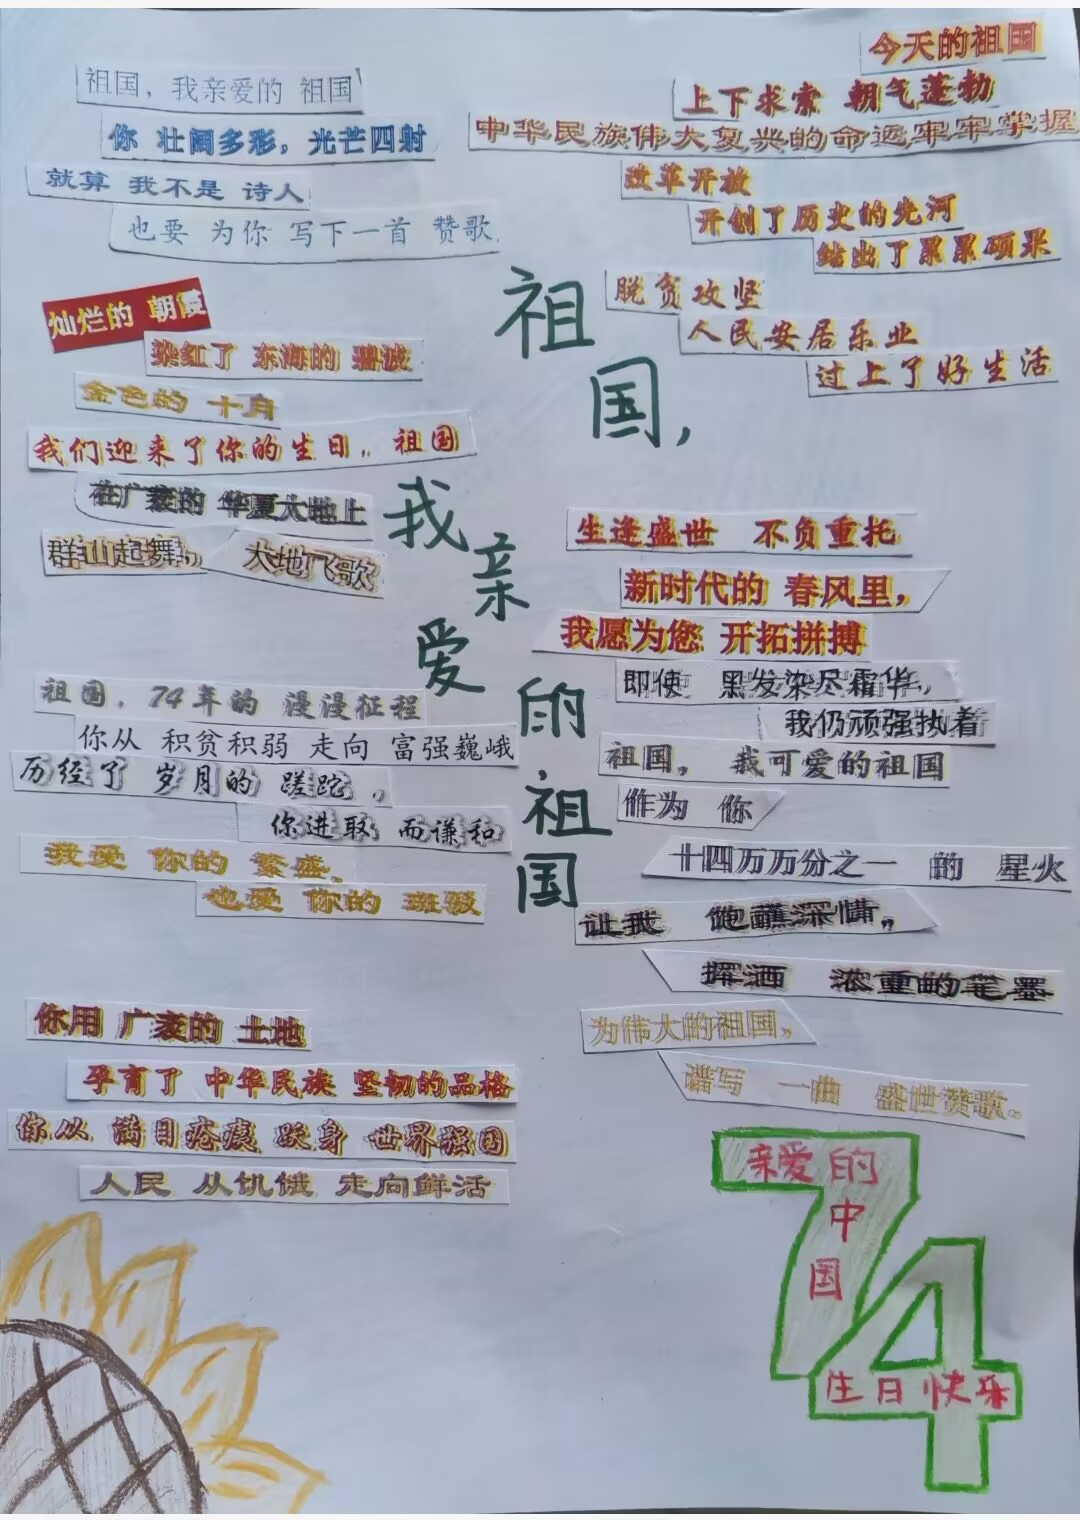 祖国，我亲爱的 祖国
你 壮阔多彩，光芒四射
就算 我不是 诗人
也要 为你 写下一首 赞歌
灿烂的 朝霞
染红了 东海的 碧波
金色的 十月
我们迎来了你的生日，祖国
在广袤的 华夏大地上
群山起舞，大地飞歌
祖国，74年的 漫漫征程
你从 积贫积弱 走向 富强巍峨
历经了 岁月的 蹉跎，
你进取 而谦和
我爱 你的 繁盛、
也爱 你的 斑驳
你用 广袤的 土地
孕育了 中华民族 坚韧的品格
你从 满目疮痍 跃身 世界强国
人民 从饥饿 走向鲜活
祖国，
我亲爱的祖国
今天的祖国
上下求索 朝气蓬勃
中华民族伟大复兴的命运牢牢掌握
改革开放
开创了历史的先河
结出了累累硕果
脱贫攻坚
人民安居乐业
过上了好生活
生逢盛世 不负重托
新时代的 春风里，
我愿为您 开拓拼搏
即使 黑发染尽霜华，
我仍顽强执着
祖国， 我可爱的祖国
作为 你
十四万万分之一 的 星火
让我 饱蘸深情，
挥洒 浓重的笔墨
为伟大的祖国，
谱写 一曲 盛世赞歌。
74
亲爱的
中
国
生日快乐